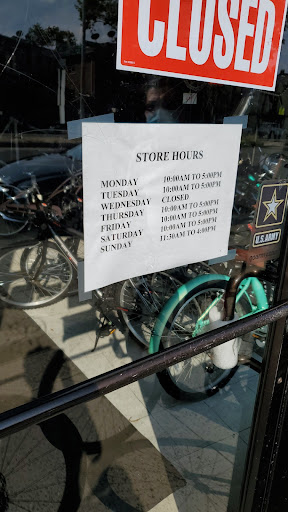 CLOSED
STORE HOURS
MONDAY 10:00AM TO 5:00PM
TUESDAY 10:00AM TO 5:00PM
WEDNESDAY CLOSED
THURSDAY 10:00AM TO 5:00PM
FRIDAY 10:00AM TO 5:00PM
SATURDAY 10:00AM TO 5:00PM
SUNDAY 11:30AM TO 4:00PM
U.S.ARMY